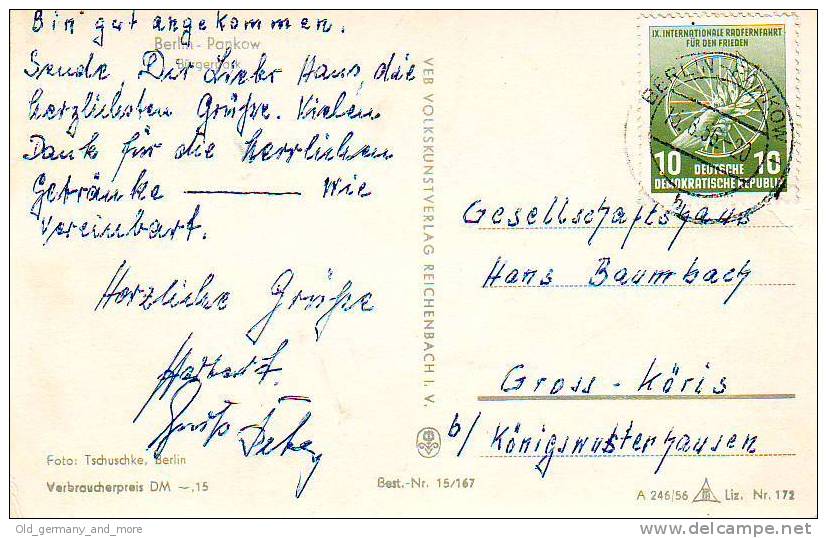 Bin gut angekommen.
Berlin - Pankow
Bürgerpark
Sende Dir Lieber Hans, die
herzlichsten Grüße. Vielen
Dank für die herrlichen
Getränke ——— wie
vereinbart.
Herzliche Grüße
Herbert
Foto: Tschuschke, Berlin
Verbraucherpreis DM —,15
VEB VOLKSKUNSTVERLAG REICHENBACH I. V.
Best.-Nr. 15/167
IX. INTERNATIONALE RADFERNFAHRT
FÜR DEN FRIEDEN
10 DEUTSCHE 10
DEMOKRATISCHE REPUBLIK
BERLIN-PANKOW
Gesellschaftshaus
Hans Baumbach
Gross-Köris
b/ Königswusterhausen
A 246/56 Liz. Nr. 172
Old_germany_and_more
delcampe.net